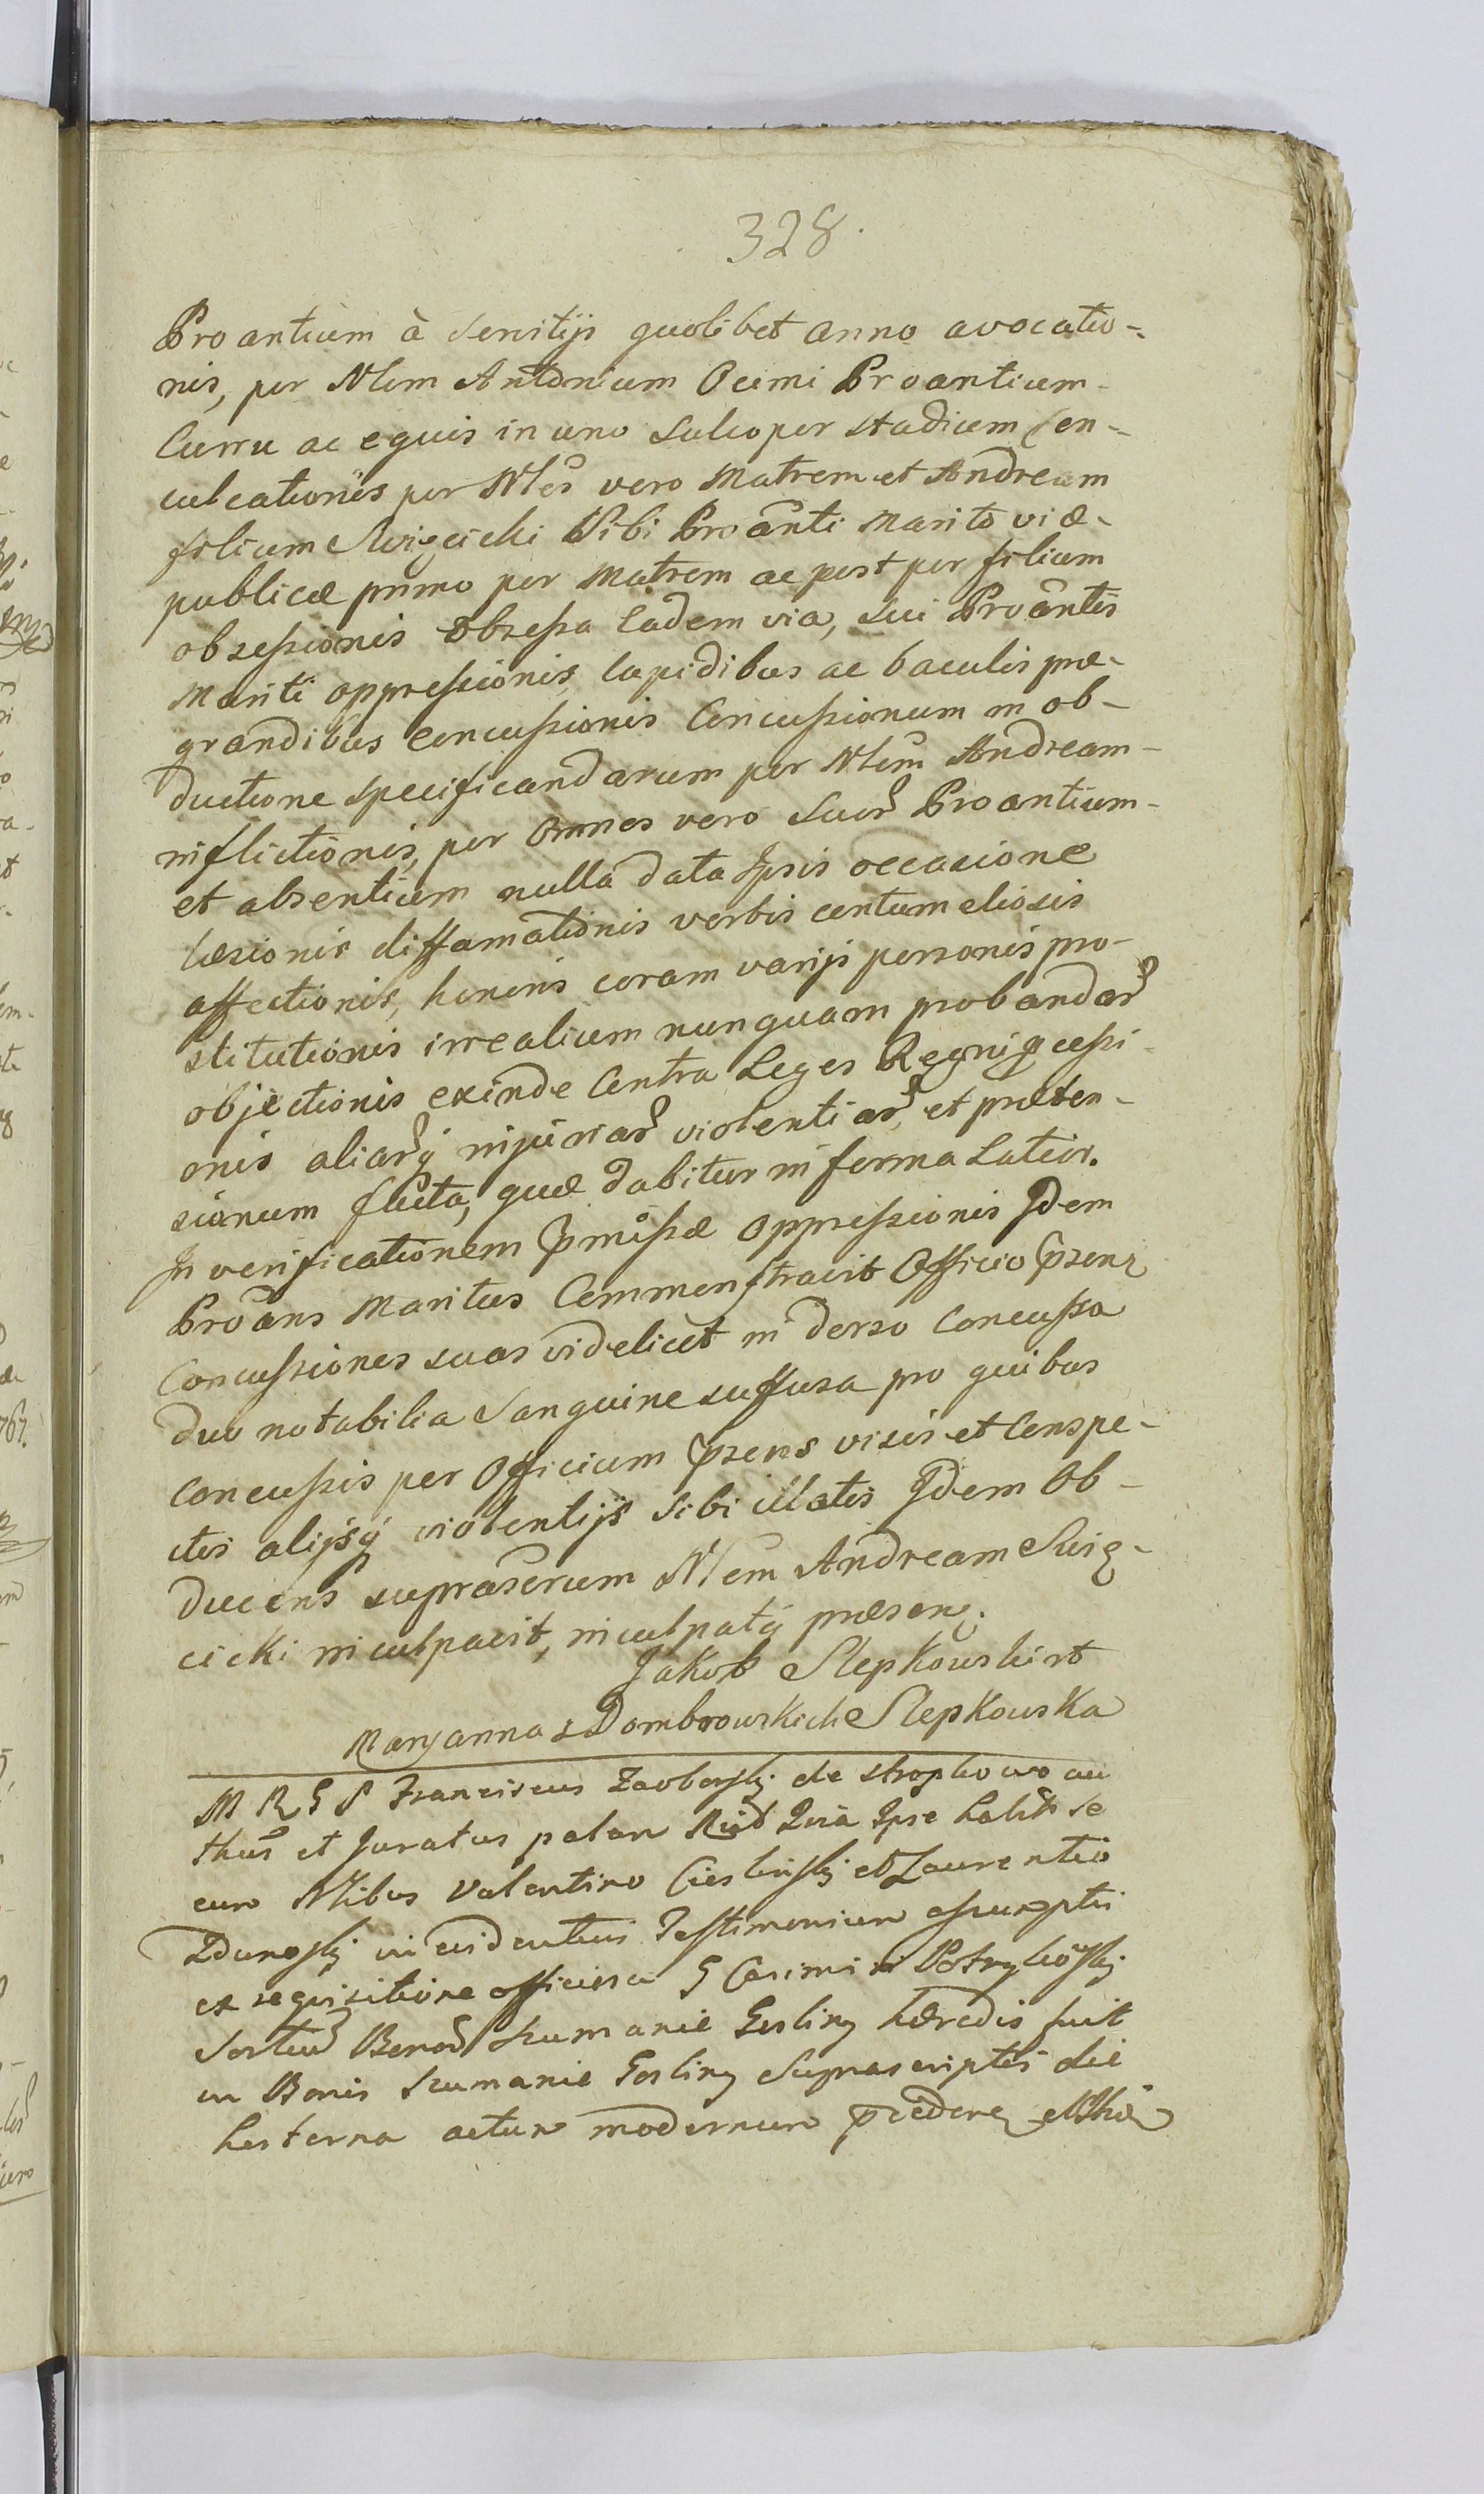 328.
Proantium à servitijs quolibet anno avocatio-
nis, per Nlem Antonium Ocimi Proantium
Curru ac equis in uno sulco per stadium Con-
culcationis per Nles vero Matrem et Andream
filium Swięcicki Sibi Proanti Marito viæ
publicæ primo per Matrem ac post per filium
obsessionis obsessa Eadem via, sui Proantis
Mariti oppressionis, lapidibus ac baculis præ-
grandibus concussionis Concussionum in ob-
ductione specificandarum per Nlem Andream
inflictionis, per Omnes vero Suor Proantium
et absentium nulla data Ipsis occasione
læsionis diffamationis verbis contumeliosis
affectionis, honoris coram varijs personis pro-
stitutionis irrealium nunquam probandar
objectionis exinde Contra Leges Regni
onis aliarq injuriar violentiar, et præten-
sionum facta, quæ dabitur in forma Latior.
In verificationem pmissæ oppressionis Idem
Proans Maritus Commonstravit Officio psenti
Concussiones suas videlicet in dorso Concussa
duo notabilia Sanguine suffusa pro quibus
concussis per Officium psens visis et Conspe-
ctis alijsq violentijs sibi illatis Idem Ob-
ducens suprascrium Nlem Andream Swię-
cicki inculpavit, inculpatq præsen.
Jakob Slepkowski
Maryanna z Dombrowskich Slepkowska
M R G P Franciscus de
thus et Juratus palam Quia Ipse habit se
cum Nlibus Valentino et Laurentio
in evidentius Testimonium assumptis
ex requisitione officiosa G Casimiri
Sortiu Bonor Szumanie Gosliny hæredis fuit
in Bonis Szumanie Gosliny Suprascriptis die
hesterna actum modernum præceden